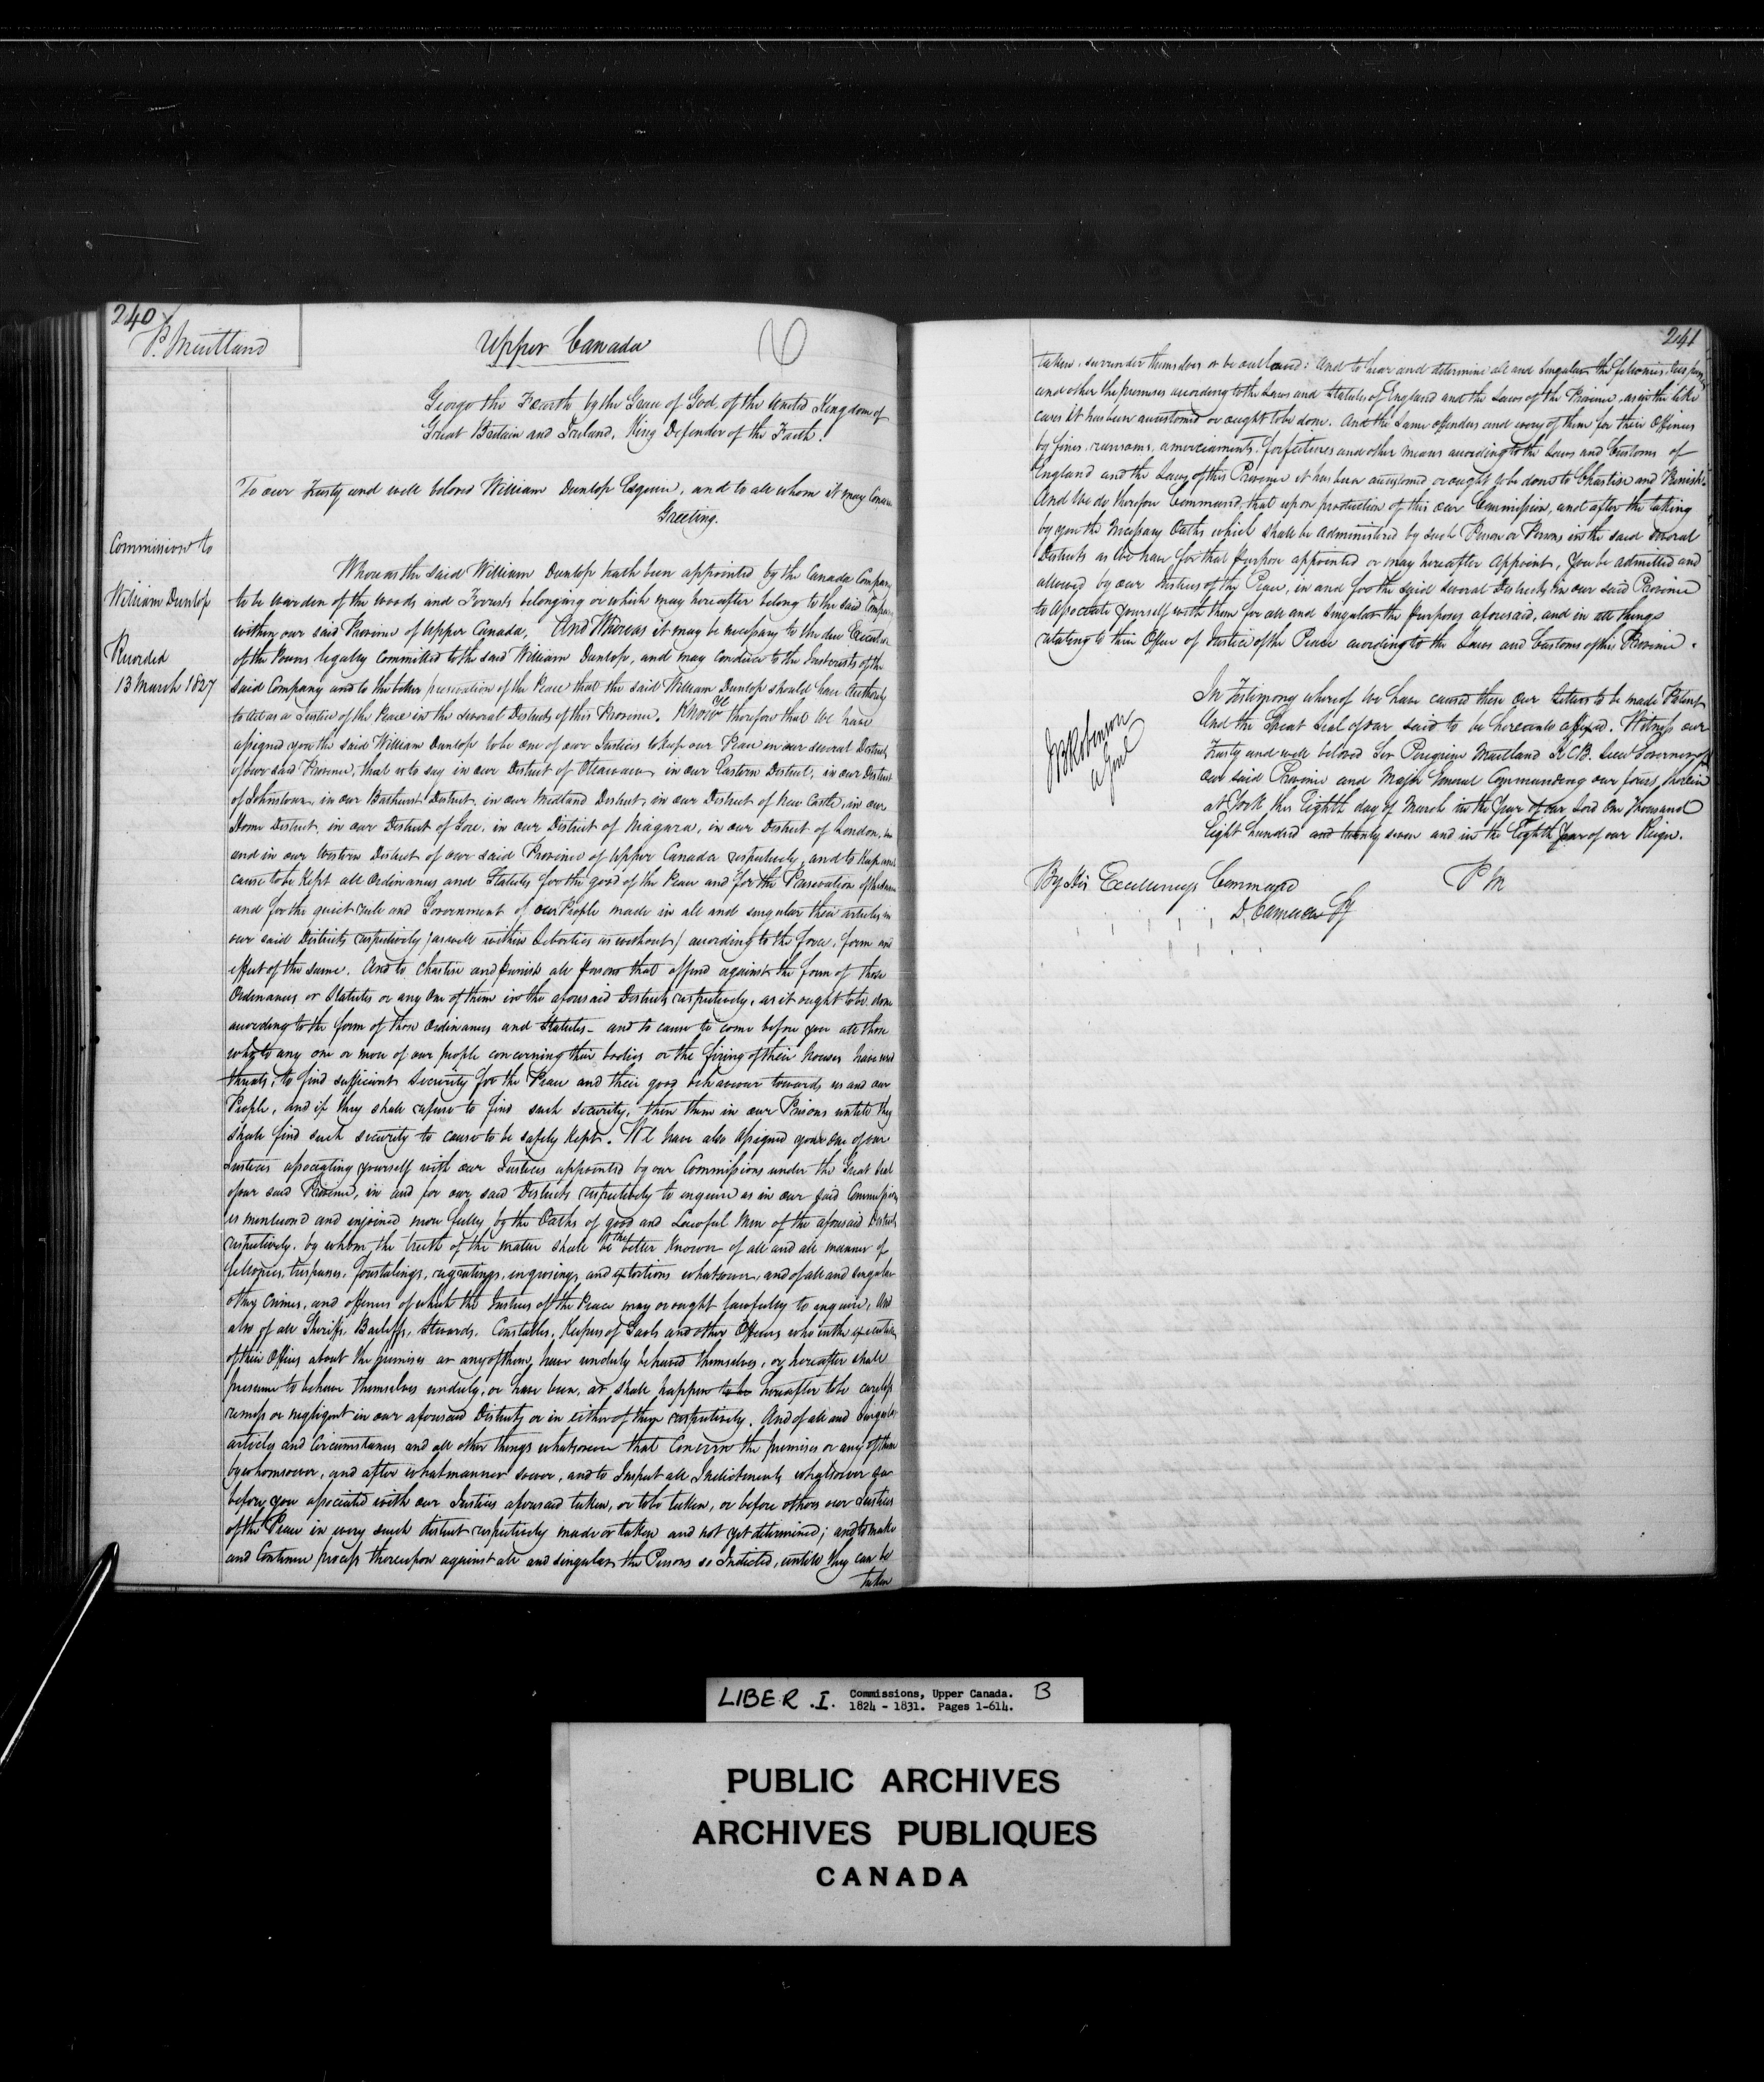 240
P. Maitland
Upper Canada
George the Fourth by the Grace of God, of the United Kingdom of
Great Britain and Ireland, King Defender of the Faith.
To our Trusty and well beloved William Dunlop Esquire, and to all whom it may Concern
Greeting.
Commission to
William Dunlop
Recorded
13 March 1827
Whereas the said William Dunlop hath been appointed by the Canada Company
to be warden of the woods and Forrests belonging or which may hereafter belong to the said Company
within our said Province of Upper Canada, And Whereas it may be necessary to the due Execution
of the Powers legally Committed to the said William Dunlop, and may Conduce to the Interests of the
said Company and to the better preservation of the Peace that the said William Dunlop should have Authority
to act as a Justice of the Peace in the several Districts of this Province. Know ye therefore that We have
assigned you the said William Dunlop to be one of our Justices to keep our Peace in our several Districts
of our said Province, that is to say in our District of Ottawa in our Eastern District, in our District
of Johnstown, in our Bathurst District, in our Midland District, in our District of New Castle, in our
Home District, in our District of Gore, in our District of Niagara, in our District of London,
and in our Western District of our said Province of Upper Canada respectively, and to keep and
cause to be kept all Ordinances and Statutes for the good of the Peace and for the Preservation of the same
and for the quiet rule and Government of our People made in all and singular their articles in
our said Districts respectively (as well within Liberties as without) according to the force, form and
effect of the same. And to Chastise and punish all persons that offend against the form of those
Ordinances or Statutes or any One of them in the aforesaid Districts respectively, as it ought to be done
according to the form of those Ordinances and Statutes - and to cause to come before you all those
who to any one or more of our people concerning their bodies or the firing of their houses have used
threats, to find sufficient Security for the Peace and their good behaviour towards us and our
People, and if they shall refuse to find such security, then them in our Prisons untill they
shall find such security to cause to be safely kept. We have also assigned you one of our
Justices associating yourself with our Justices appointed by our Commissions under the Great Seal
of our said Province, in and for our said Districts respectively to enquire as in our said Commissions
is mentioned and enjoined more fully by the Oaths of good and Lawful Men of the aforesaid Districts
respectively, by whom the truth of the matter shall be the better known of all and all manner of
fellonies, trespasses, forestalings, regratings, ingrosings, and extortions whatsoever, and of all and singular
other Crimes, and offences of which the Justices of the Peace may or ought lawfully to enquire, And
also of all Sheriffs, Bailiffs, Stewards, Constables, Keepers of Gaols and other Officers who in the execution
of their Offices about the premises or any of them, have unduly behaved themselves, or hereafter shall
presume to behave themselves unduly, or have been, or shall happen to be hereafter to be careless
remiss or negligent in our aforesaid Districts or in either of them respectively. And of all and Singular
articles and Circumstances and all other things whatsoever that Concern the premises or any of them
by whomsoever, and after what manner soever, and to Inspect all Indictments whatsoever so
before you associated with our Justices aforesaid taken, or to be taken, or before others our Justices
of the Peace in every such district respectively made or taken and not yet determined; and to make
and Continue process thereupon against all and singular the Persons so Indicted, untill they can be
taken
241
taken, surrender themselves or be outlawed: And to hear and determine all and singular the felonies, trespasses
and other the premises according to the Laws and Statutes of England and the Laws of the Province, as in the like
cases it has been accustomed or ought to be done. And the same offenders and every of them for their Offences
by fines, ransoms, amerciaments, forfeitures and other means according to the Laws and Customs of
England and the Laws of this Province it has been accustomed or ought to be done to Chastise and Punish.
And We do therefore Command, that upon production of this our Commission, and after the taking
by you the Necessary Oaths which shall be administered by such Person or Persons in the said several
Districts as We have for that purpose appointed or may hereafter Appoint, You be admitted and
allowed by our Justices of the Peace, in and for the said several Districts in our said Province
to Associate yourself with them for all and singular the purposes aforesaid, and in all things
relating to their Office of Justice of the Peace according to the Laws and Customs of this Province.
In Testimony whereof We have caused these Our Letters to be made Patent
And the Great Seal of our said to be hereunto affixed. Witness our
Trusty and well beloved Sir Peregrine Maitland K.C.B. Lieut Governor of
our said Province and Major General Commanding our forces therein
at York this Eighth day of March in the Year of our Lord One Thousand
Eight hundred and twenty seven and in the Eighth Year of our Reign.
J B Robinson
A Genl
By His Excellencys Command
P M
D. Cameron Sy
LIBER .I. Commissions, Upper Canada. B
1824 - 1831. Pages 1-614.
PUBLIC ARCHIVES
ARCHIVES PUBLIQUES
CANADA